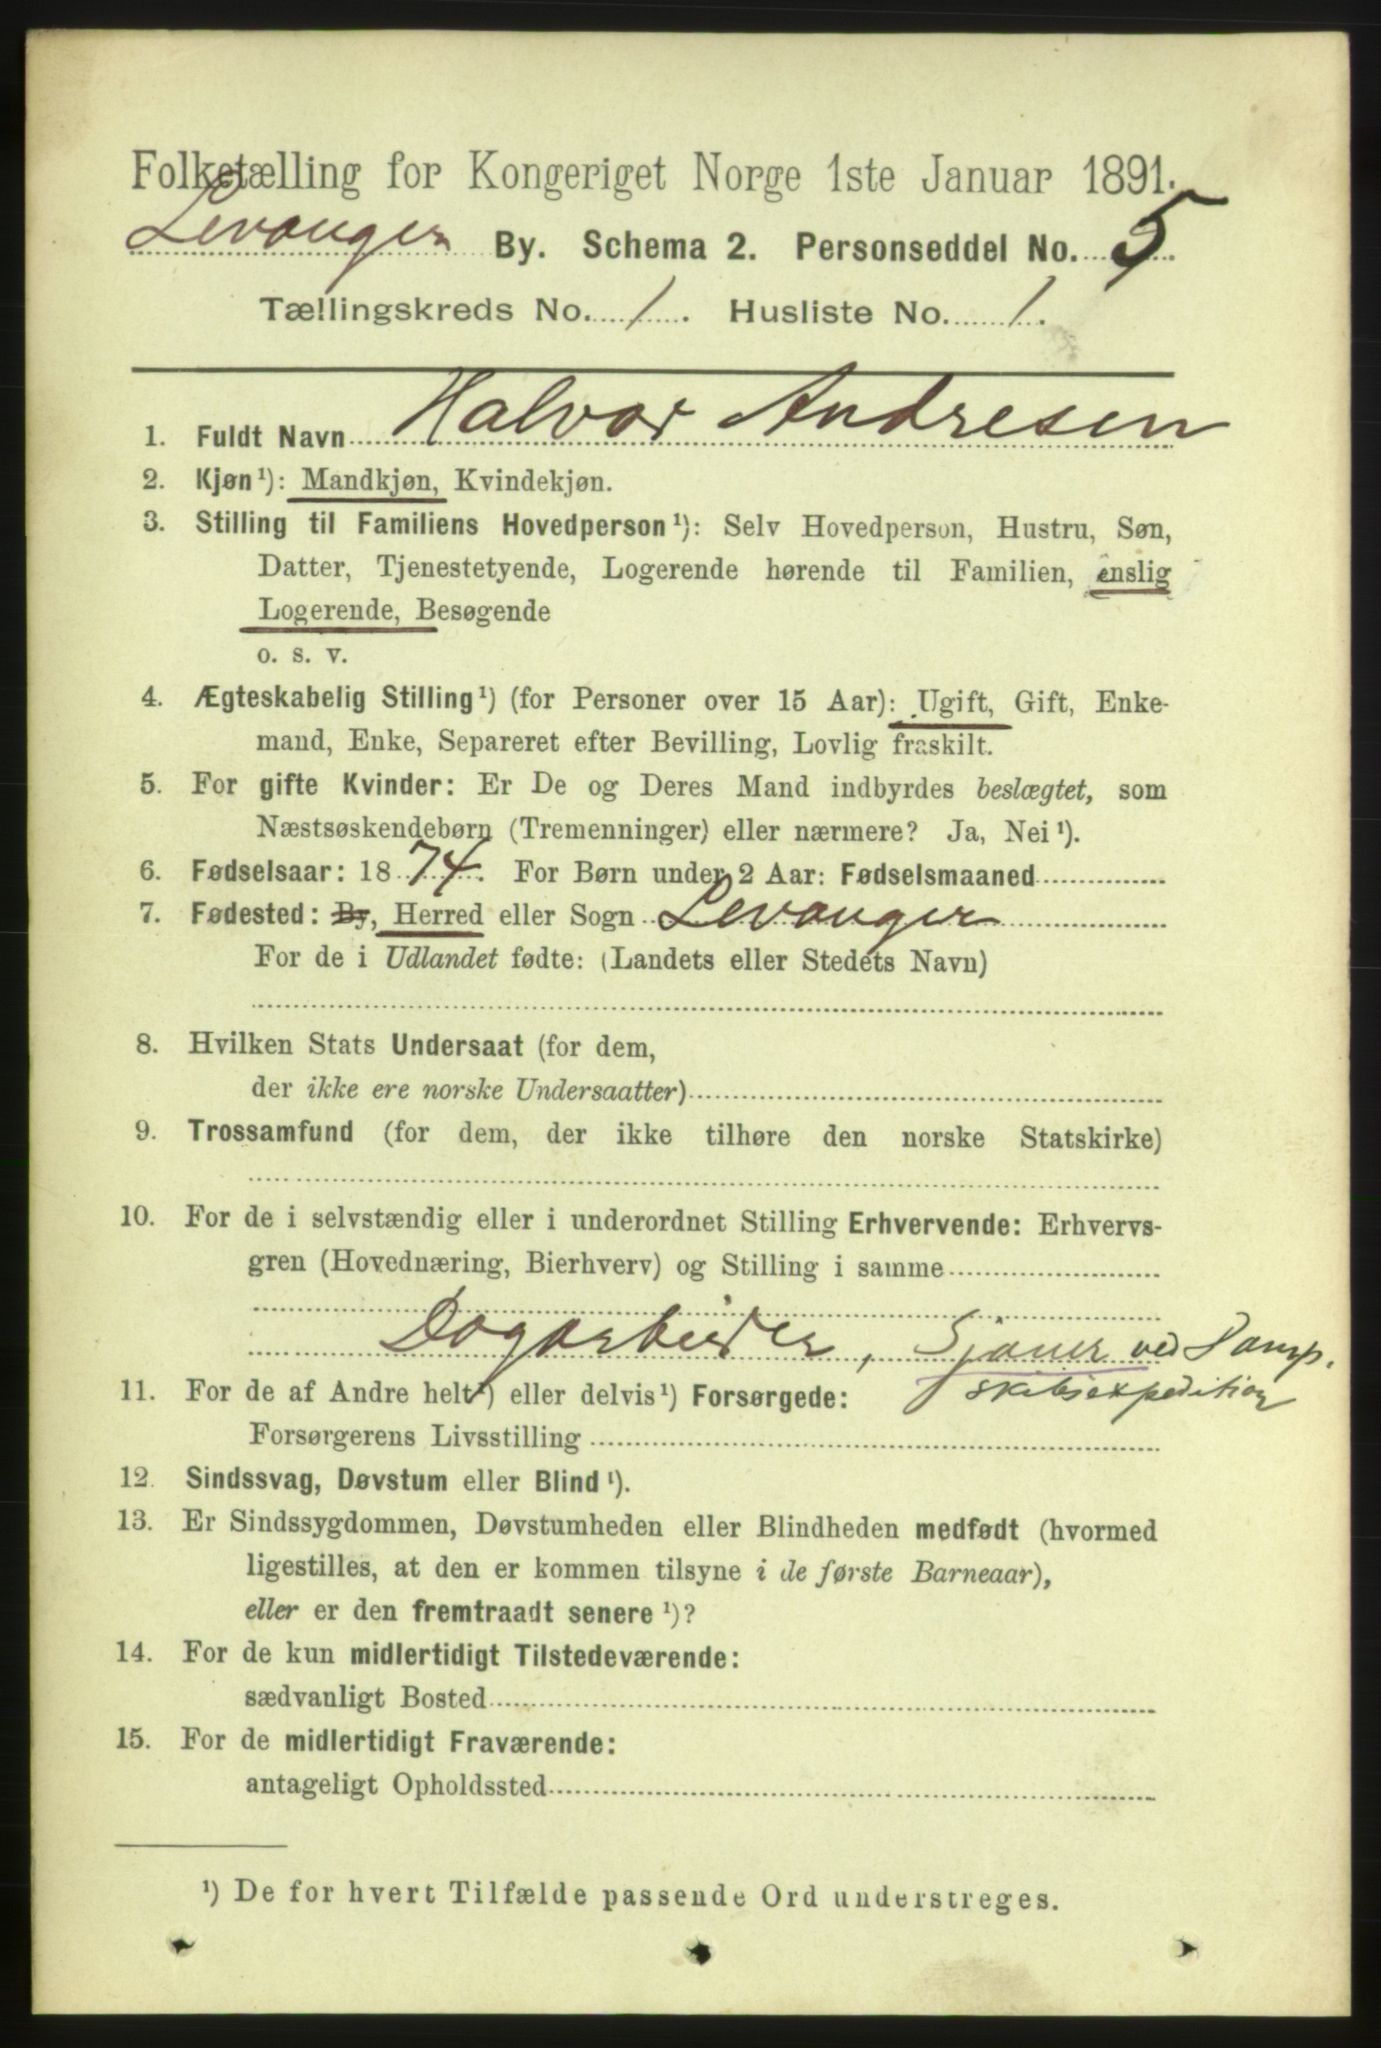 Folketælling for Kongeriget Norge 1ste Januar 1891.
Levanger By. Schema 2. Personseddel No. 5
Tællingskreds No. 1. Husliste No. 1.
1. Fuldt Navn Halvor Andresen
2. Kjøn¹): Mandkjøn, Kvindekjøn.
3. Stilling til Familiens Hovedperson¹): Selv Hovedperson, Hustru, Søn,
Datter, Tjenestetyende, Logerende hørende til Familien, enslig
Logerende, Besøgende
o. s. v.
4. Ægteskabelig Stilling¹) (for Personer over 15 Aar): Ugift, Gift, Enke-
mand, Enke, Separeret efter Bevilling, Lovlig fraskilt.
5. For gifte Kvinder: Er De og Deres Mand indbyrdes beslægtet, som
Næstsøskendebørn (Tremenninger) eller nærmere? Ja, Nei¹).
6. Fødselsaar: 1874. For Børn under 2 Aar: Fødselsmaaned
7. Fødested: By, Herred eller Sogn Levanger
For de i Udlandet fødte: (Landets eller Stedets Navn)
8. Hvilken Stats Undersaat (for dem,
der ikke ere norske Undersaatter)
9. Trossamfund (for dem, der ikke tilhøre den norske Statskirke)
10. For de i selvstændig eller i underordnet Stilling Erhvervende: Erhvervs-
gren (Hovednæring, Bierhverv) og Stilling i samme
Dagarbeider, Sjauer ved Damp.
skibsexpedition
11. For de af Andre helt¹) eller delvis¹) Forsørgede:
Forsørgerens Livsstilling
12. Sindssvag, Døvstum eller Blind¹).
13. Er Sindssygdommen, Døvstumheden eller Blindheden medfødt (hvormed
ligestilles, at den er kommen tilsyne i de første Barneaar),
eller er den fremtraadt senere¹)?
14. For de kun midlertidigt Tilstedeværende:
sædvanligt Bosted
15. For de midlertidigt Fraværende:
antageligt Opholdssted
¹) De for hvert Tilfælde passende Ord understreges.